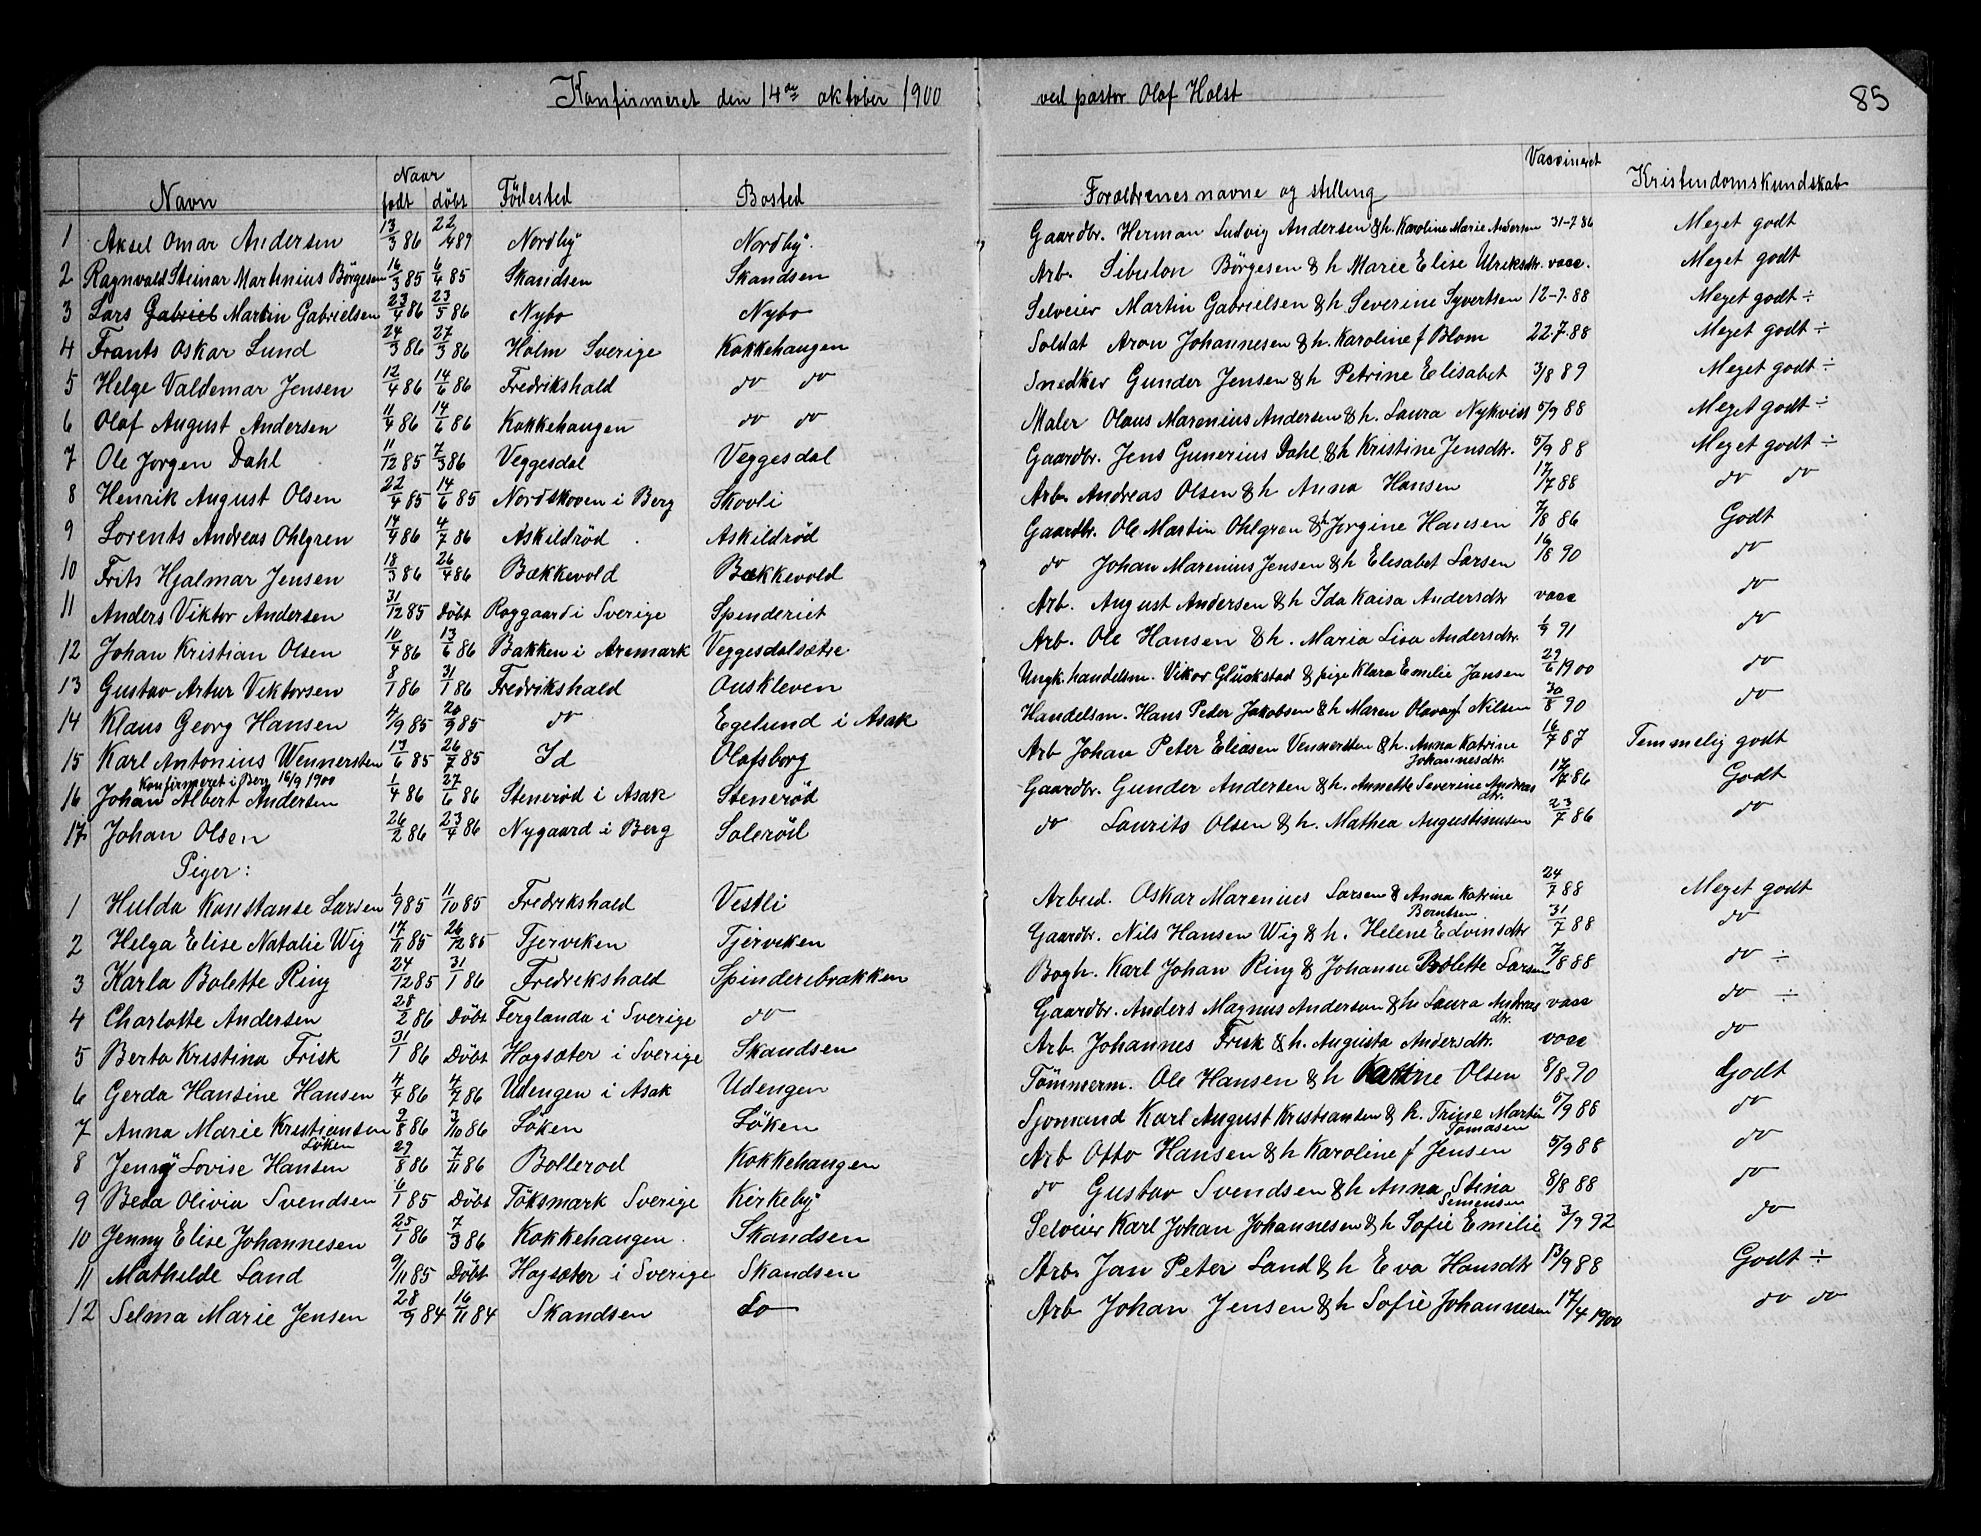 Konfirmeret den 14de oktober 1900 ved pastor Olaf Holst 85
Navn Naar født döbt Födested Bosted Forældrenes navne og stilling Vaccineret Kristendomskundskab
1 Aksel Omar Andersen 13/3 86 22/4 89 Nordby Nordby. Gaardbr. Herman Ludvig Andersen & h. Karoline Marie Andersen 31-7 86 Meget godt
2 Ragnvald Steinar Martinius Börgesen 16/3 85 6/4 85 Skandsen Skandsen Arb. Sibulon Börgesen & h Marie Elise Ulriksdtr. vacc. Meget godt
3 Lars Gabriel Martin Gabrielsen 23/4 86 23/5 86 Nybo Nybo Selveier Martin Gabrielsen & h Severine Syvertsen 12-7. 88 Meget godt ÷
4 Frants Oskar Lund 24/3 86 27/3 86 Holm Sverige Kokkehaugen Soldat Aron Johannesen & h. Karoline f Blom 22-7-88 Meget godt ÷
5 Helge Valdemar Jensen 12/4 86 14/6 86 Fredrikshald do do Snedker Gunder Jensen & h Petrine Elisabet 3/8 89 Meget godt ÷
6 Olaf August Andersen 11/4 86 14/6 86 Kokkehaugen do do Maler Olaus Marenius Andersen & h. Laura Nykvist 5/9 88 Meget godt ÷
7 Ole Jorgen Dahl 11/12 85 7/3 86 Veggesdal Veggesdal Gaardbr. Jens Gunerius Dahl & h Kristine Jensdtr. 5/9 88 Meget godt ÷
8 Henrik August Olsen 22/4 85 14/6 85 Nordskoven i Berg Skovli Arb. Andreas Olsen & h Anna Hansen 17/7 88 do do
9 Lorents Andreas Ohlgren 14/4 86 4/7 86 Askildrød Askildrød Gaardbr. Ole Martin Ohlgren & h Jorgine Hansen 7/8 86 Godt
10 Frits Hjalmar Jensen 18/3 86 26/4 86 Bækkevold Bækkevold do Johan Marenius Jensen & h Elisabet Larsen 16/8 90 do
11 Anders Viktor Andersen 31/12 85 Döbt Roggaard i Sverige Spenderiet Arb. August Andersen & h Ida Kaisa Andersdtr vacc do
12 Johan Kristian Olsen 10/4 86 13/6 86 Bakken i Aremark Veggesdalsætre Arb. Ole Hansen & h. Maria Lisa Andersdtr. 1/9 91 do
13 Gustav Artur Viktorsen 8/1 86 31/1 86 Fredrikshald Ouskleven Ungk. handelsm. Vikor Glückstad & pige Klara Emilie Jansen 29/6 1900 do
14 Klaus Georg Hansen 4/9 85 20/9 85 do Egelund i Asak Handelsm. Hans Peder Jakobsen & h Maren Olava f Nilsen 30/8 90 do
15 Karl Antonius Wennersten 13/6 85 26/7 85 Id Olafsborg Arb Johan Peter Eliasen Vennersten & h. Anna Katrine Johannesdtr. 16/7 87 Temmelig godt
Konfirmeret i Berg 16/9 1900
16 Johan Albert Andersen 1/4 86 27/6 86 Stenerød i Asak Stenerød Gaardbr. Gunder Andersen & h. Annette Severine Andreas dtr. 17/7 86 Godt
17 Johan Olsen 26/2 86 23/4 86 Nygaard i Berg Solerød do Laurits Olsen & h. Mathea Augustinusen 23/7 86 do
Piger:
1 Hulda Konstanse Larsen 1/9 85 11/10 85 Fredrikshald Vestli Arbeid. Oskar Marenius Larsen & Anna Katrine Berntsen 24/7 88 Meget godt
2 Helga Elise Natalie Wig 17/11 85 26/12 85 Tjerviken Tjerviken Gaardbr. Nils Hansen Wig & h. Helene Edvinsdtr 31/7 88 do
3 Karla Bolette Ring 24/12 85 31/1 86 Fredrikshald Spinderibrakken Bogh. Karl Johan Ring & Johanne Bolette Larsen 7/8 88 do ÷
4 Charlotte Andersen 28/2 86 Döbt Ferglanda i Sverige do Gaardbr. Anders Magnus Anderson & h Laura Andreas dtr. vacc do ÷
5 Berta Kristina Frisk 31/1 86 Döbt Hogsæter i Sverige Skandsen Arb. Johannes Frisk & h. Augusta Andersdtr. vacc do
6 Gerda Hansine Hansen 4/4 86 4/7 86 Udengen i Asak Udengen Tömmerm. Ole Hansen & h Katrine Olsen 8/8 90 Godt
7 Anna Marie Kristiansen Löken 9/8 86 3/10 86 Löken Löken Sjomand Karl August Kristiansen & h. Trine Martin Tomasen 5/9 88 do
8 Jenny Lovise Hansen 29/8 86 7/11 86 Bollerod Kokkehaugen Arb Otto Hansen & h Karoline f Jensen 5/9 88 do
9 Beda Olivia Svendsen 6/1 85 Döbt Töksmark Sverige Kirkeby do Gustav Svendsen & h Anna Stina Simensen 8/8 88 do
10 Jenny Elise Johannesen 25/1 86 7/3 86 Kokkehaugen Skandsen Selveier Karl Johan Johannesen & h Sofie Emilie 3/9 92 do
11 Mathilde Land 9/11 85 Döbt Hogsæter i Sverige Skandsen Arb. Jan Peter Land & h Eva Hansdtr 13/9 88 Godt ÷
12 Selma Marie Jensen 28/9 84 16/11 84 Skandsen do Arb Johan Jensen & h Sofie Johannesen 17/4 1900 do do